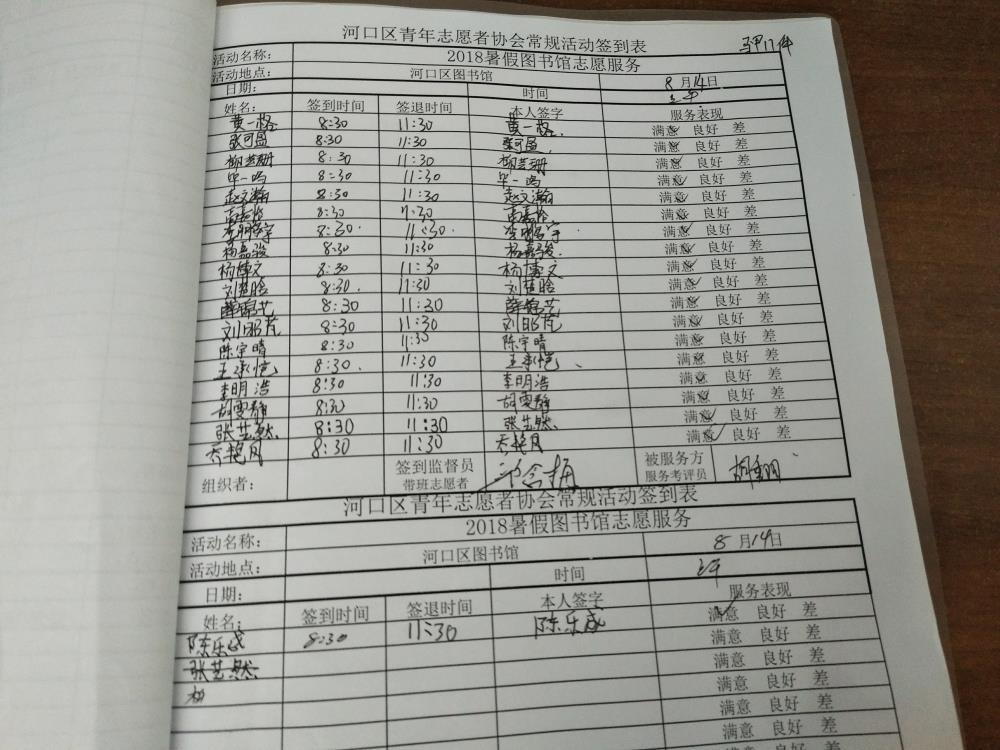 河口区青年志愿者协会常规活动签到表
马甲17件
活动名称： 2018暑假图书馆志愿服务
活动地点： 河口区图书馆 8月14日
日期： 时间 上午
姓名： 签到时间 签退时间 本人签字 服务表现
黄一格 8:30 11:30 黄一格 满意 良好 差
张可盈 8:30 11:30 张可盈 满意 良好 差
柳芸珊 8:30 11:30 柳芸珊 满意 良好 差
毕一鸣 8:30 11:30 毕一鸣 满意 良好 差
赵文瀚 8:30 11:30 赵文瀚 满意 良好 差
8:30 11:30 满意 良好 差
李鹏宇 8:30 11:30 李鹏宇 满意 良好 差
杨嘉骏 8:30 11:30 杨嘉骏 满意 良好 差
杨博文 8:30 11:30 杨博文 满意 良好 差
刘楚晗 8:30 11:30 刘楚晗 满意 良好 差
薛锦艺 8:30 11:30 薛锦艺 满意 良好 差
刘昭芃 8:30 11:30 刘昭芃 满意 良好 差
陈宇晴 8:30 11:30 陈宇晴 满意 良好 差
王承恺 8:30 11:30 王承恺 满意 良好 差
李明浩 8:30 11:30 李明浩 满意 良好 差
胡雯静 8:30 11:30 胡雯静 满意 良好 差
张芸然 8:30 11:30 张芸然 满意 良好 差
乔艳月 8:30 11:30 乔艳月 满意 良好 差
组织者： 签到监督员 被服务方
带班志愿者 服务考评员
河口区青年志愿者协会常规活动签到表
活动名称： 2018暑假图书馆志愿服务
活动地点： 河口区图书馆 8月14日
日期： 时间 上午
姓名： 签到时间 签退时间 本人签字 服务表现
陈乐成 8:30 11:30 陈乐成 满意 良好 差
张芸然 满意 良好 差
满意 良好 差
满意 良好 差
满意 良好 差
满意 良好 差